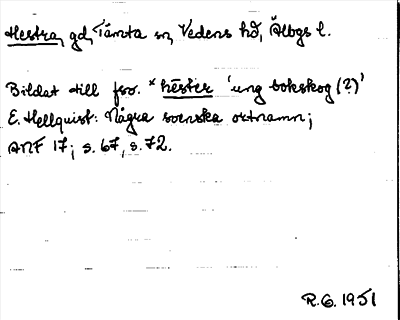 Hestra, gd, Tämta sn, Vedens hd, Älbgs l.
Bildat till fsv. *hēster 'ung bokskog (?)'
E. Hellquist: Några svenska ortnamn;
ANF 17; s. 67, s. 72.
R.G. 1951